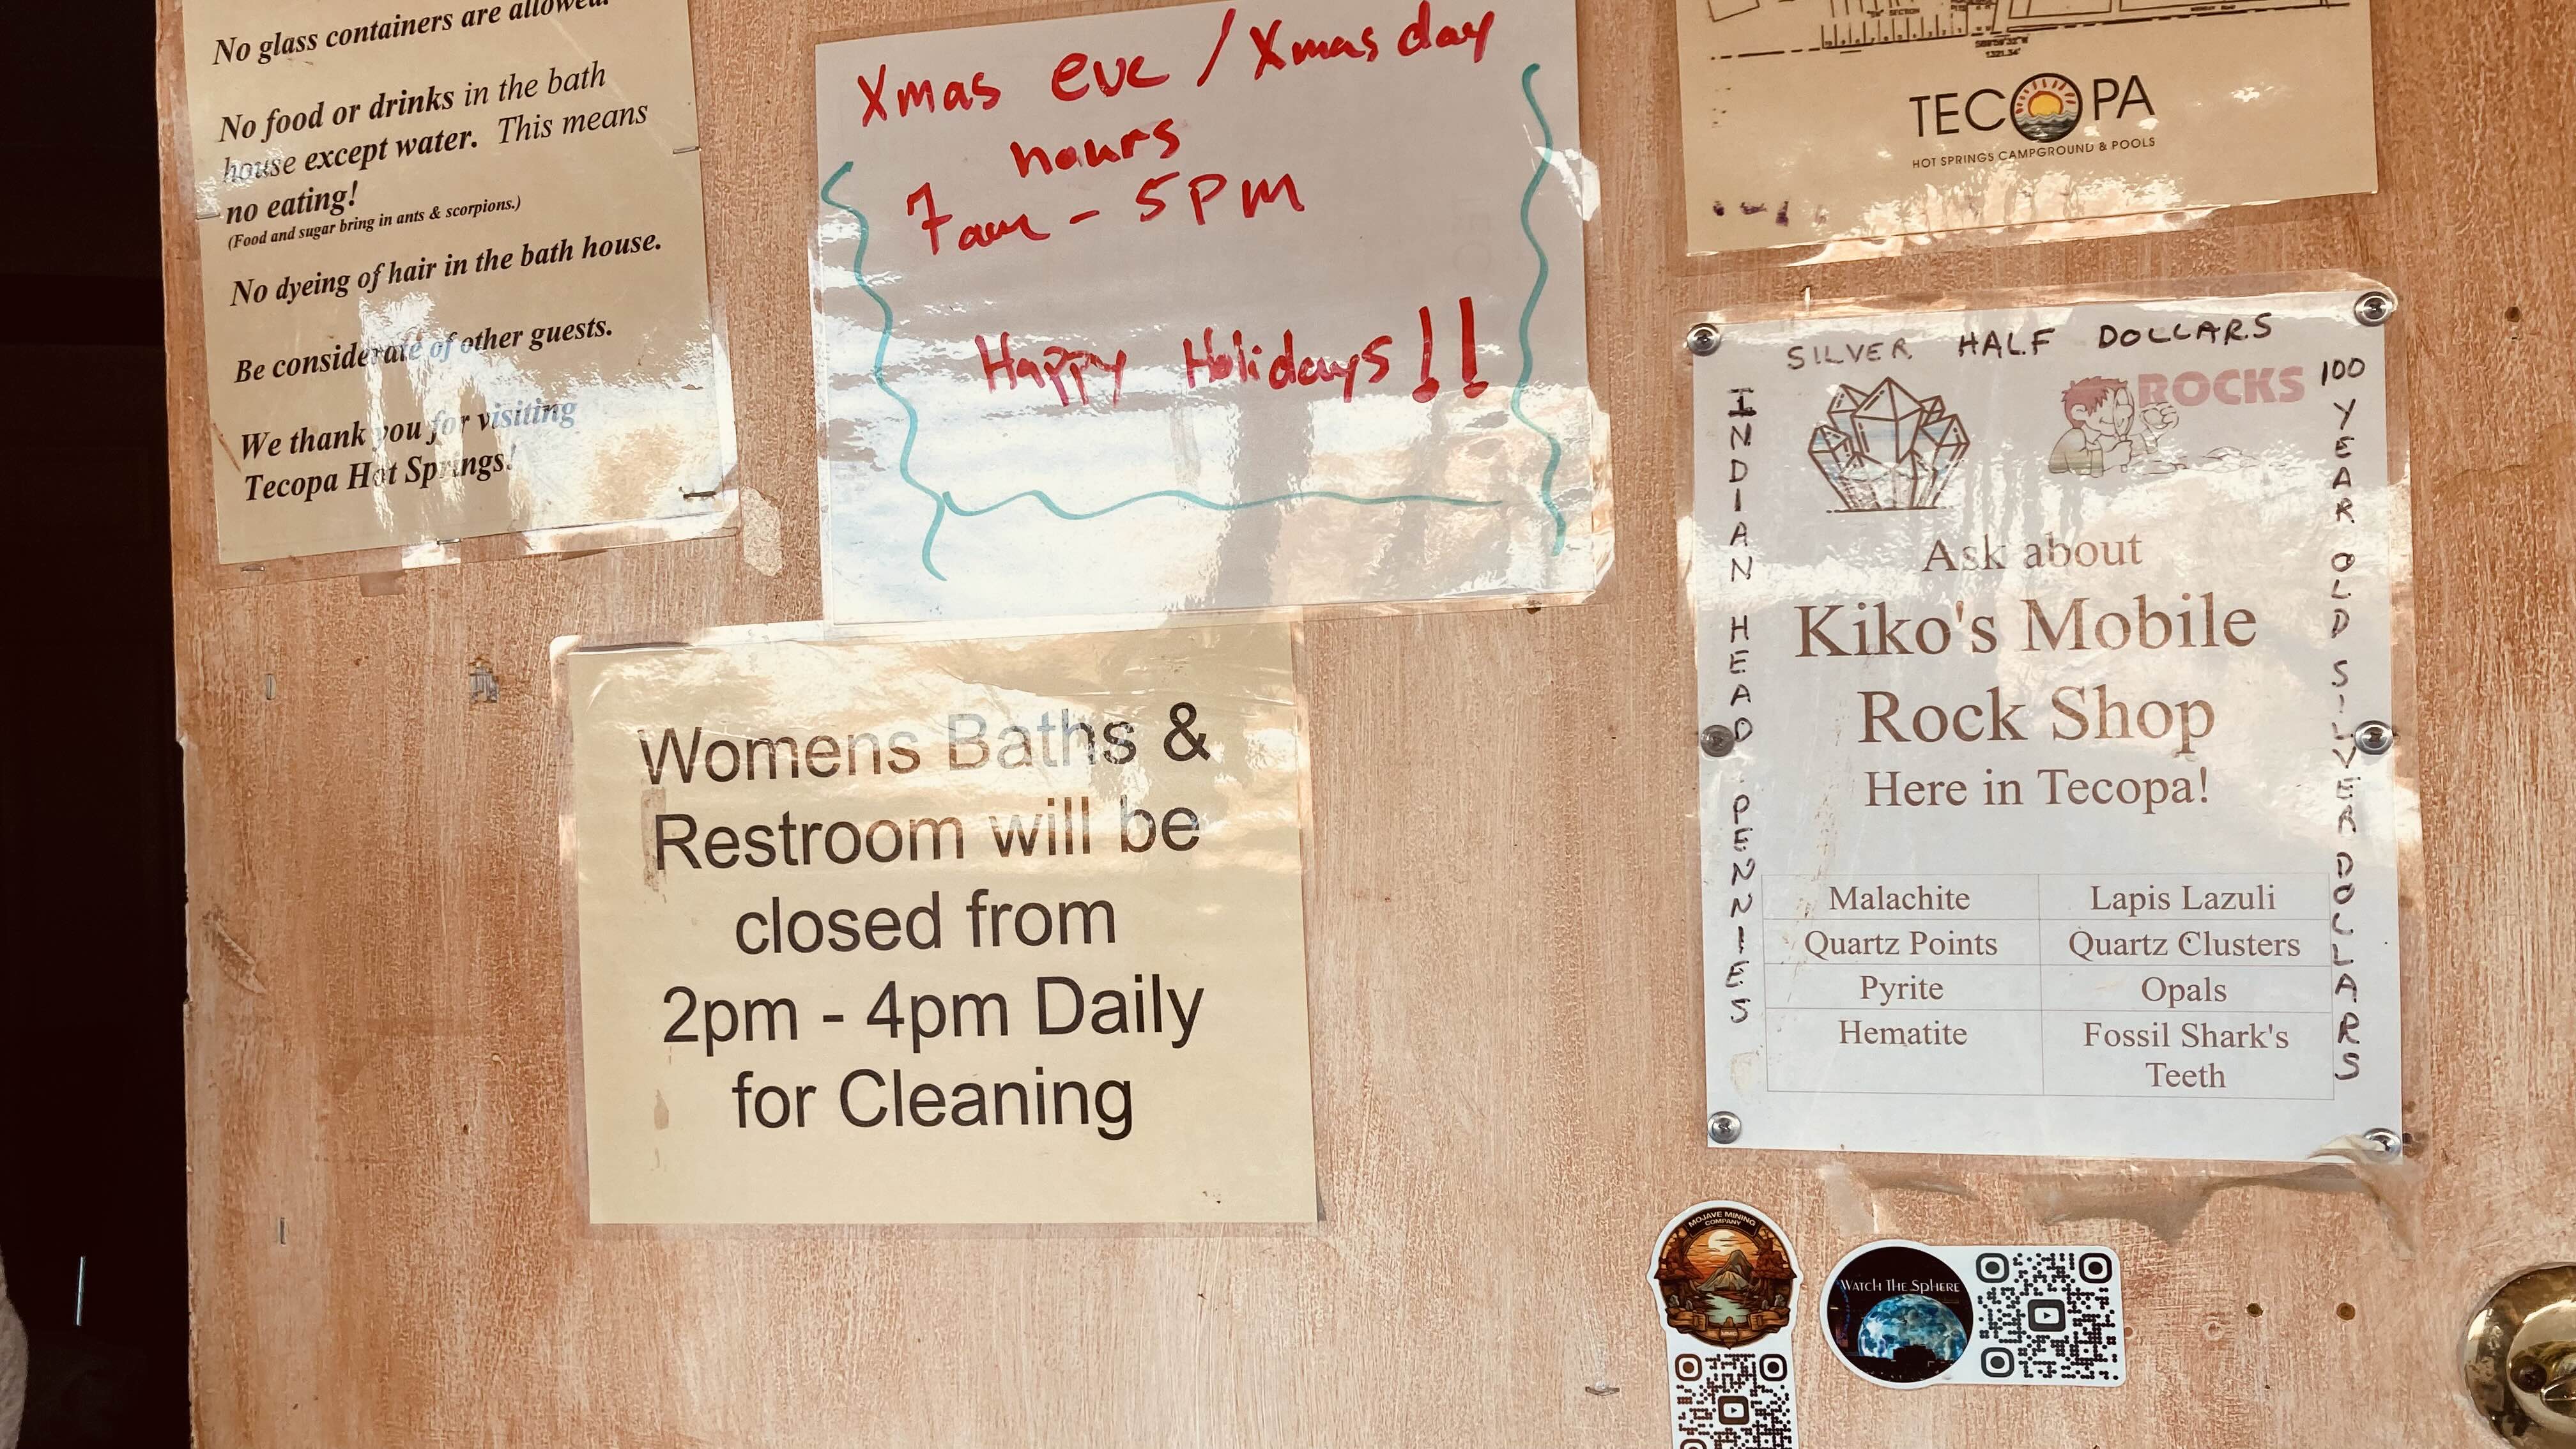 No glass containers are allowed.
No food or drinks in the bath
house except water. This means
no eating!
(Food and sugar bring in ants & scorpions.)
No dyeing of hair in the bath house.
Be considerate of other guests.
We thank you for visiting
Tecopa Hot Springs!
Xmas eve / Xmas day
hours
7am - 5PM
Happy Holidays!!
Womens Baths &
Restroom will be
closed from
2pm - 4pm Daily
for Cleaning
TECOPA
HOT SPRINGS CAMPGROUND & POOLS
SILVER HALF DOLLARS
INDIAN HEAD PENNIES
100 YEAR OLD SILVER DOLLARS
ROCKS
Ask about
Kiko's Mobile
Rock Shop
Here in Tecopa!
Malachite Lapis Lazuli
Quartz Points Quartz Clusters
Pyrite Opals
Hematite Fossil Shark's
Teeth
MOJAVE MINING
COMPANY
MMC
WATCH THE SPHERE